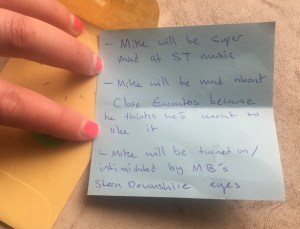 - Mike will be super
mad at ST music
- Mike will be mad about
Close Encounters because
he thinks he's meant to
like it
- Mike will be turned on/
intimidated by MB's
eyes